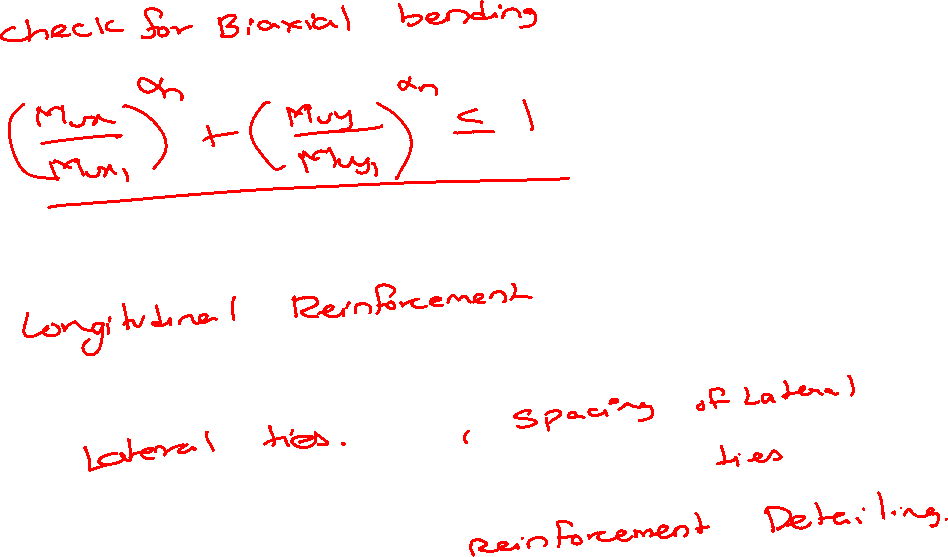 Check for Biaxial bending
(Mux/Mux₁)^αn + (Muy/Muy₁)^αn ≤ 1
Longitudinal Reinforcement
Lateral ties. , Spacing of Lateral
ties
Reinforcement Detailing.